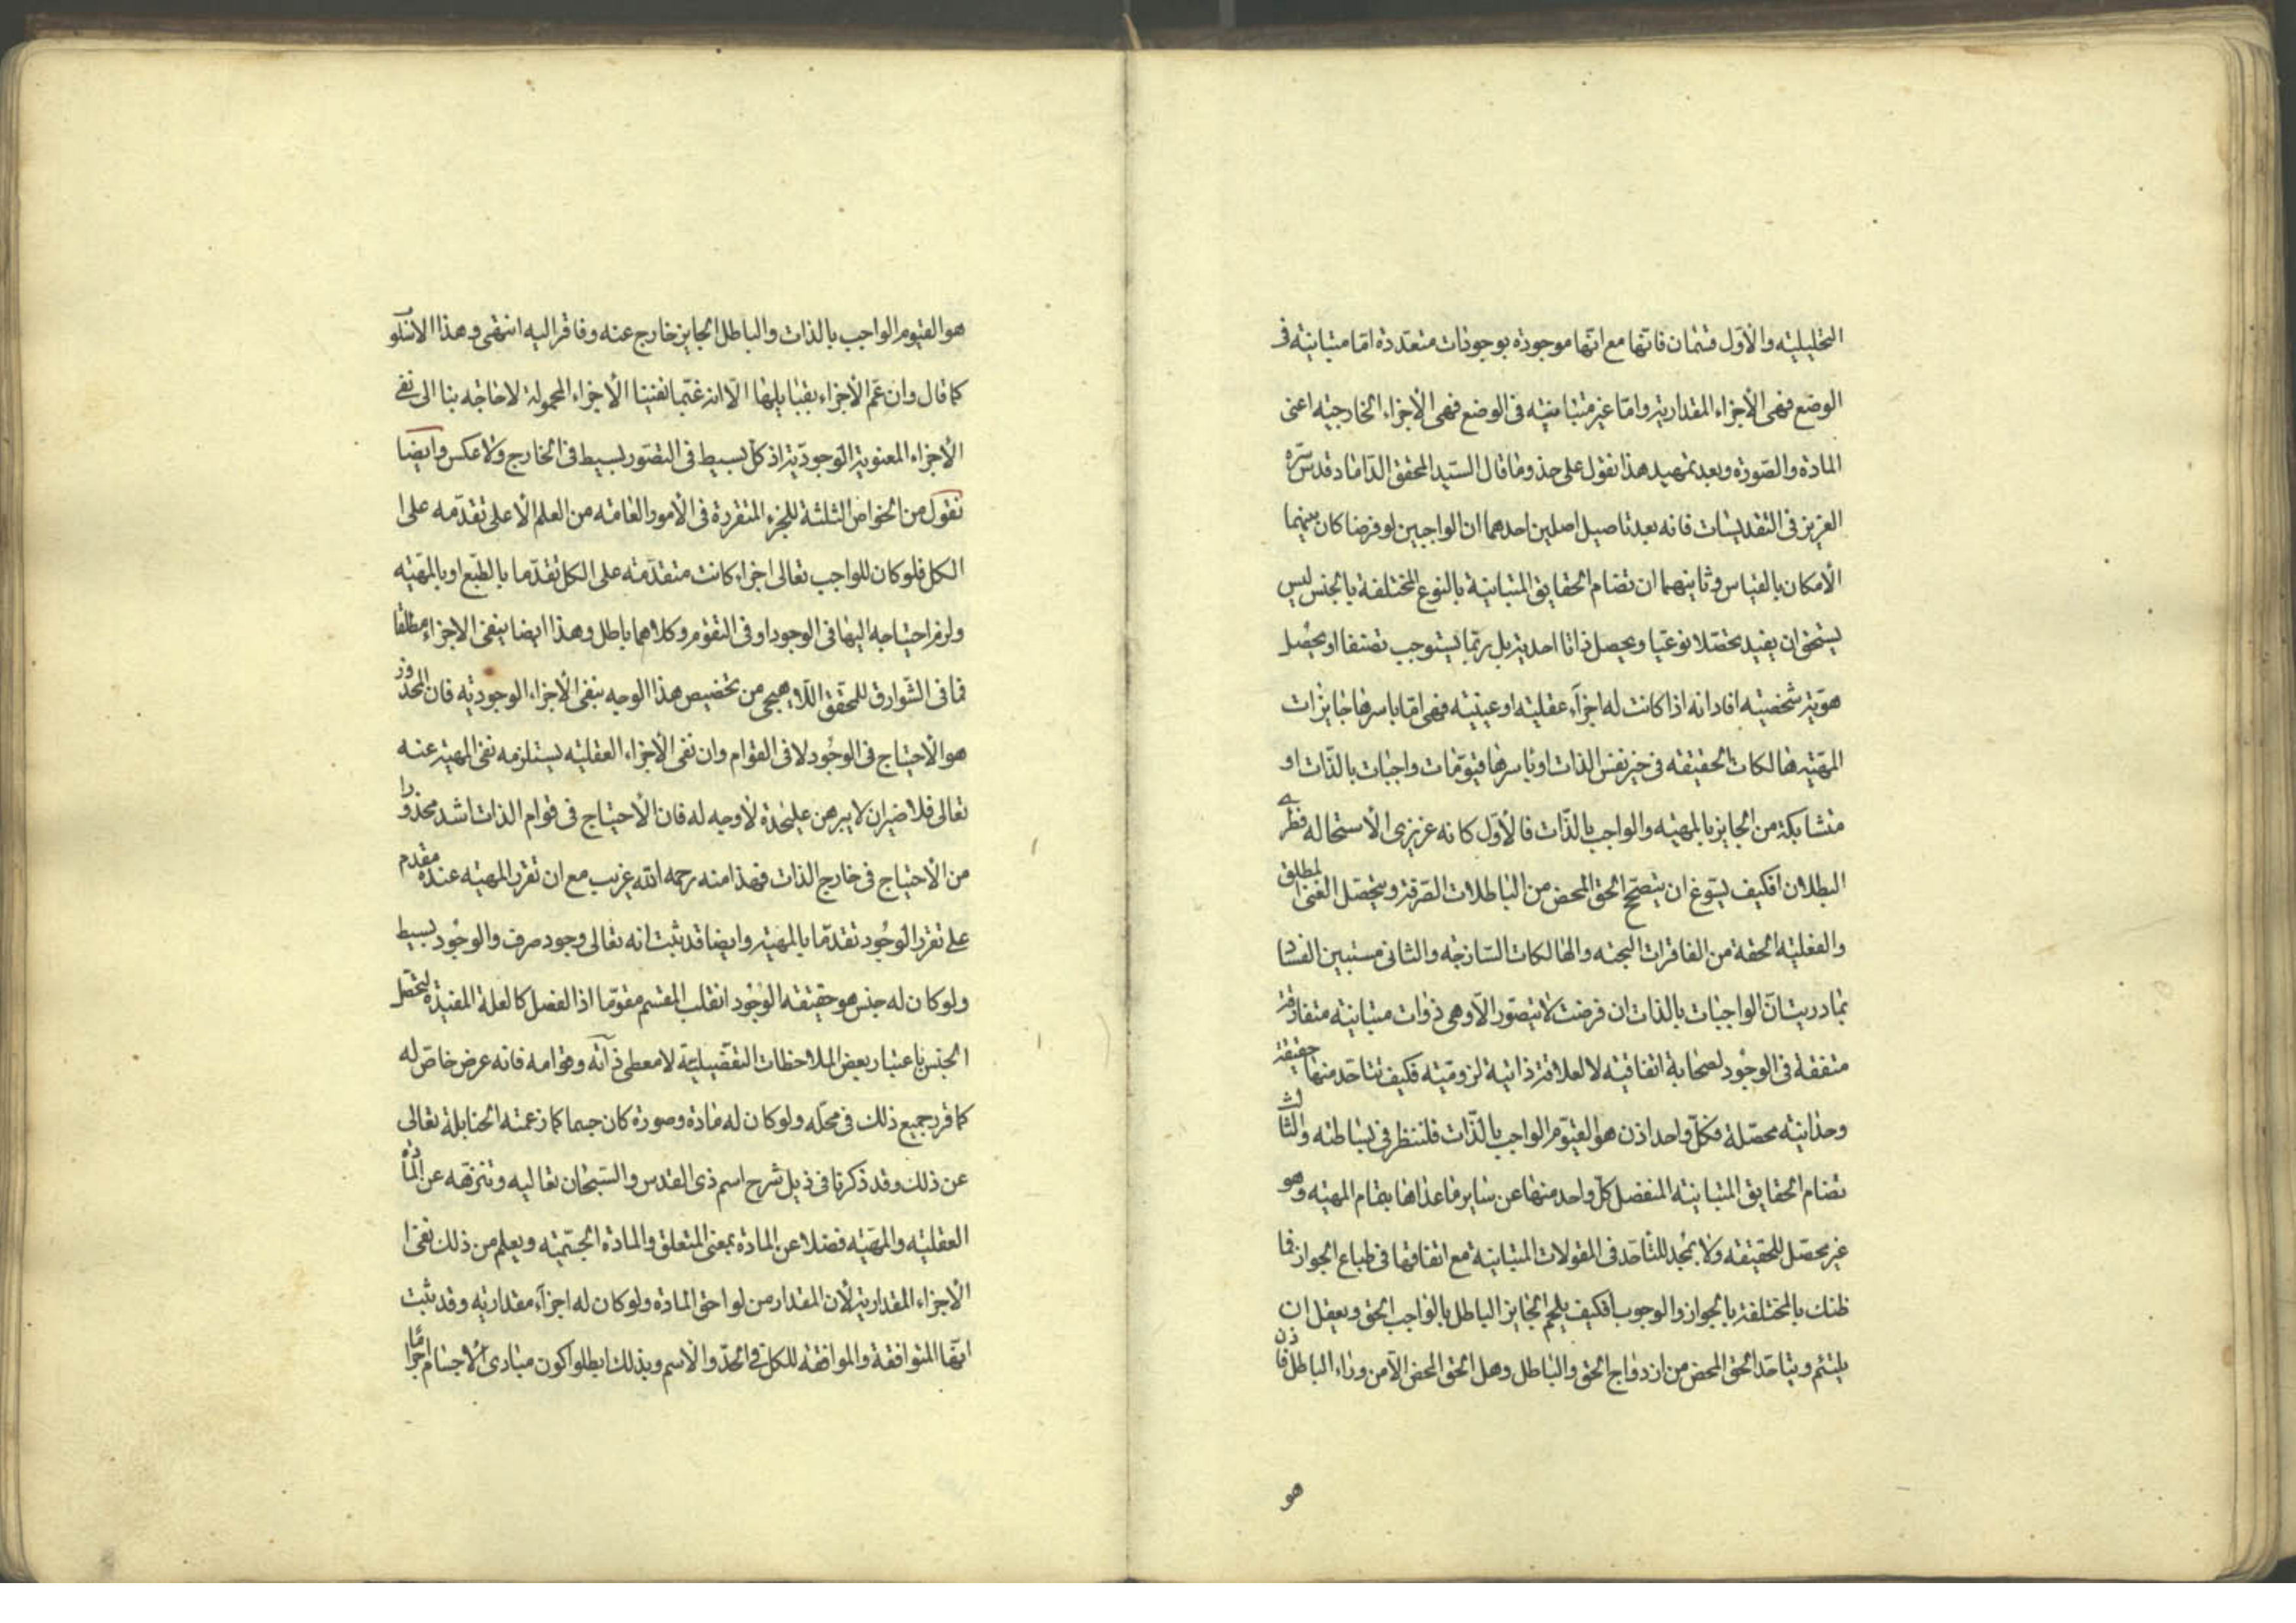 التحليليه والأول قسمان فانها مع انها موجوده بوجودات متعدده امّا متباينه فى
الوضع فهى الأجزاء المقداريه وامّا غير متباينه فى الوضع فهى الأجزاء الخارجيه اعنى
المادة والصورة وبعد تمهيد هذا نقول على حذو ما قال السيد المحقق الداماد قدس سره
العزيز فى التقديسات فانه بعد تاصيل اصلين احدهما ان الواجبين لو فرضا كان بينهما
الأمكان بالقياس وثانيهما ان تضام الحقايق المتباينة بالنوع المختلفة بالجنس ليس
يستحق ان يفيد تحصّلا نوعيا ويحصل ذاتا احديه بل ربّما يستوجب تصنفا او يحصّل
هويّه شخصيه افاد انه اذا كانت له اجزآء عقليه او عينيه فهى امّا باسرها جايزات
المهيّه هالكات الحقيقه فى حيز نفس الذات او باسرها قيوّمات واجبات بالذّات او
متشابكة من الجايز بالمهيه والواجب بالذّات فالأول كانه غريزى الأستحاله فطرے
البطلان افكيف يسوغ ان يتصحّح الحق المحض من الباطلات الصّرفة ويتحصّل الغنى المطلق
والفعليه الحقه من الفاقرات البحته والهالكات السّاذجه والثانى مستبين الفساد
بما دريت انّ الواجبات بالذات ان فرضت لا تتصوّر الّا وهى ذوات متباينه متفارقة
متفقة فى الوجود لصحابة اتفاقيه لا لعلاقة ذاتية لزوميّه فكيف تتاحّد منها حقيقة
وحدانيه محصّلة فكلّ واحد اذن هو القيّوم الواجب بالذّات فلننظر فى بساطته والثالث
تضام الحقايق المتباينه المنفصل كلّ واحد منها عن ساير ما عداها بتمام المهيّه وهو
غير محصّل للحقيقه ولا بمجد للتأحّد فى المقولات المتباينة مع اتفاقها فى طباع الجواز فما
ظنك بالمختلفة بالجواز والوجوب افكيف يلحم الجايز الباطل بالواجب الحق ويعقل ان
يلتئم ويتاحّد الحق المحض من ازدواج الحق والباطل وهل الحق المحض الّا من وراء الباطل فاذن
هو
هو القيّوم الواجب بالذات والباطل الجايز خارج عنه وفاقر اليه انتهى وهذا الاسلوب
كما قال وان عمّ الأجزاء بقبايلها الّا انه غبّ ما نفينا الأجزاء المحمولة لا حاجه بنا الى نفے
الأجزاء المعنوية الوجوديّة اذ كلّ بسيط فى التصوّر بسيط فى الخارج ولا عكس وايضا
نقول من الخواص الثلثة للجزء المتقررة فى الأمور العامّه من العلم الأعلى تقدّمه على ا
لكل فلو كان للواجب تعالى اجزاء كانت متقدّمه على الكل تقدّما بالطّبع او بالمهيّه
ولزم احتياجه اليها فى الوجود او فى التقوّم وكلاهما باطل وهذا ايضا ينفى الاجزاء مطلقا
فما فى الشّوارق للمحقّق اللّاهيجى من تخصيص هذا الوجه بنفى الأجزاء الوجوديّه فان المحذور
هو الأحتياج فى الوجود لا فى القوام وان نفى الأجزاء العقليّه يستلزمه نفى المهيّة عنه
تعالى فلا ضير ان لا يبرهن عليحدة لا وجه له فان الأحتياج فى قوام الذات اشد محذورا
من الأحتياج فى خارج الذات فهذا منه رحمه الله غريب مع ان تقرر المهيّه عنده مقدم
على تقرر الوجود تقدّما بالمهيّه وايضا قد ثبت انه تعالى وجود صرف والوجود بسيط
ولو كان له جنس هو حقيقه الوجود انقلب المقسم مقوّما اذ الفصل كالعلة المفيدة لتحصّل
الجنس باعتبار بعض الملاحظات التفصيليّة لا معطى ذاته وقوامه فانه عرض خاصّ له
كما قرر جميع ذلك فى محلّه ولو كان له مادة وصورة كان جسما كما زعمته الحنابلة تعالى
عن ذلك وقد ذكرنا فى ذيل شرح اسم ذى القدس والسّبحان تعاليه وتنزهه عن المادة
العقليه والمهيّه فضلا عن المادة بمعنى المتعلق والمادة الجسّميّه ويعلم من ذلك نفى ا
لأجزاء المقداريه لأن المقدار من لواحق المادة ولو كان له اجزآء مقداريه وقد ثبت
انها المتوافقة والموافقه للكل فى الحدّ والأسم وبذلك ابطلوا كون مبادى الأجسام اجراما